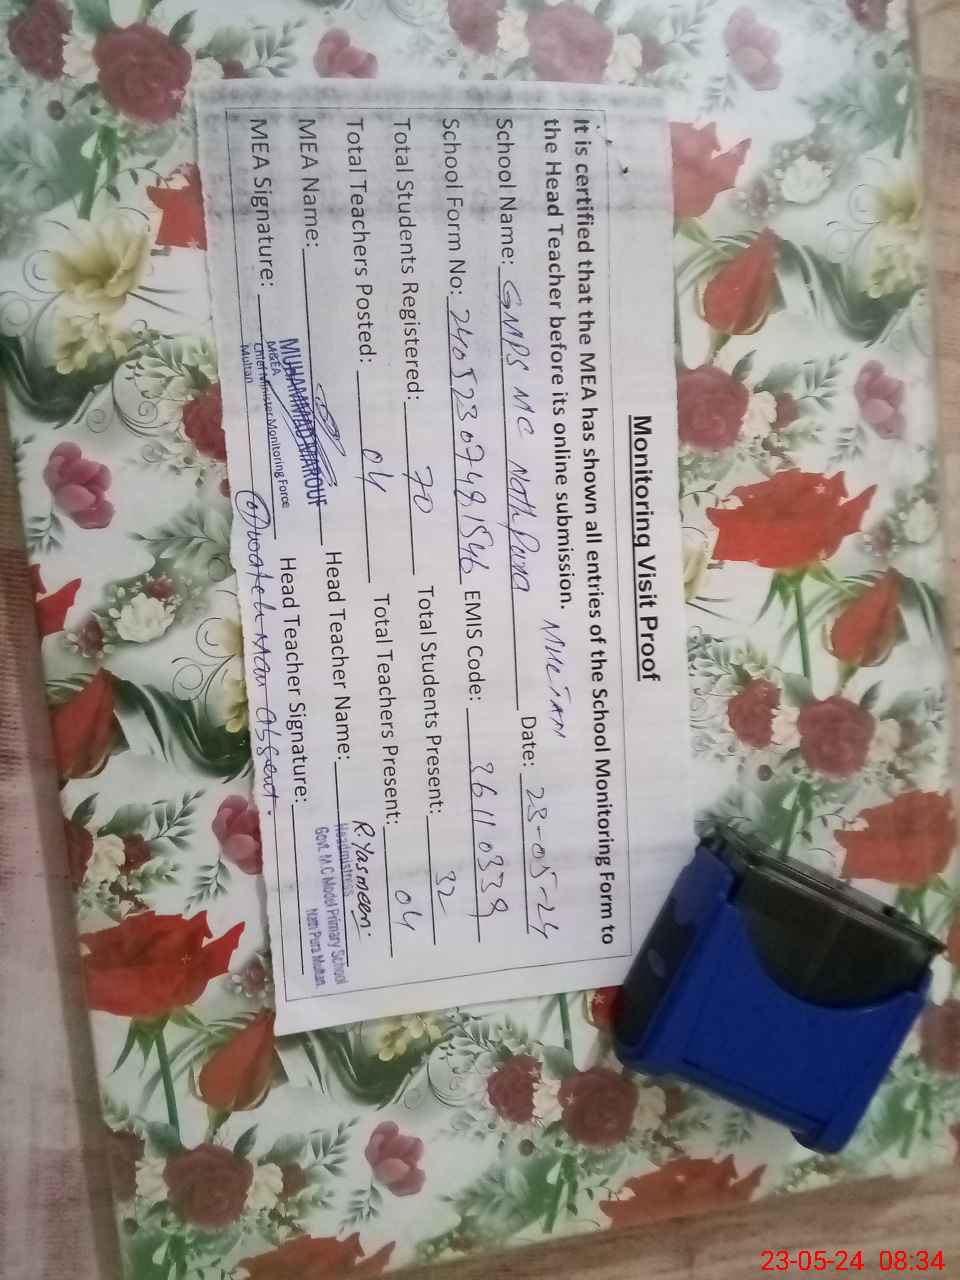 Monitoring Visit Proof
It is certified that the MEA has shown all entries of the School Monitoring Form to
the Head Teacher before its online submission. MULTAN
School Name: GMPS MC Nath Pura Date: 23-05-24
School Form No: 24052307491546 EMIS Code: 36110339
Total Students Registered: 70 Total Students Present: 32
Total Teachers Posted: 04 Total Teachers Present: 04
MEA Name: MUHAMMAD MAROUF Head Teacher Name: R. Yasmeen.
M&EA
Chief Minister Monitoring Force
Multan
Headmistress
Govt. M.C Model Primary School
Nath Pura Multan.
MEA Signature: Head Teacher Signature:
absent.
23-05-24 08:34